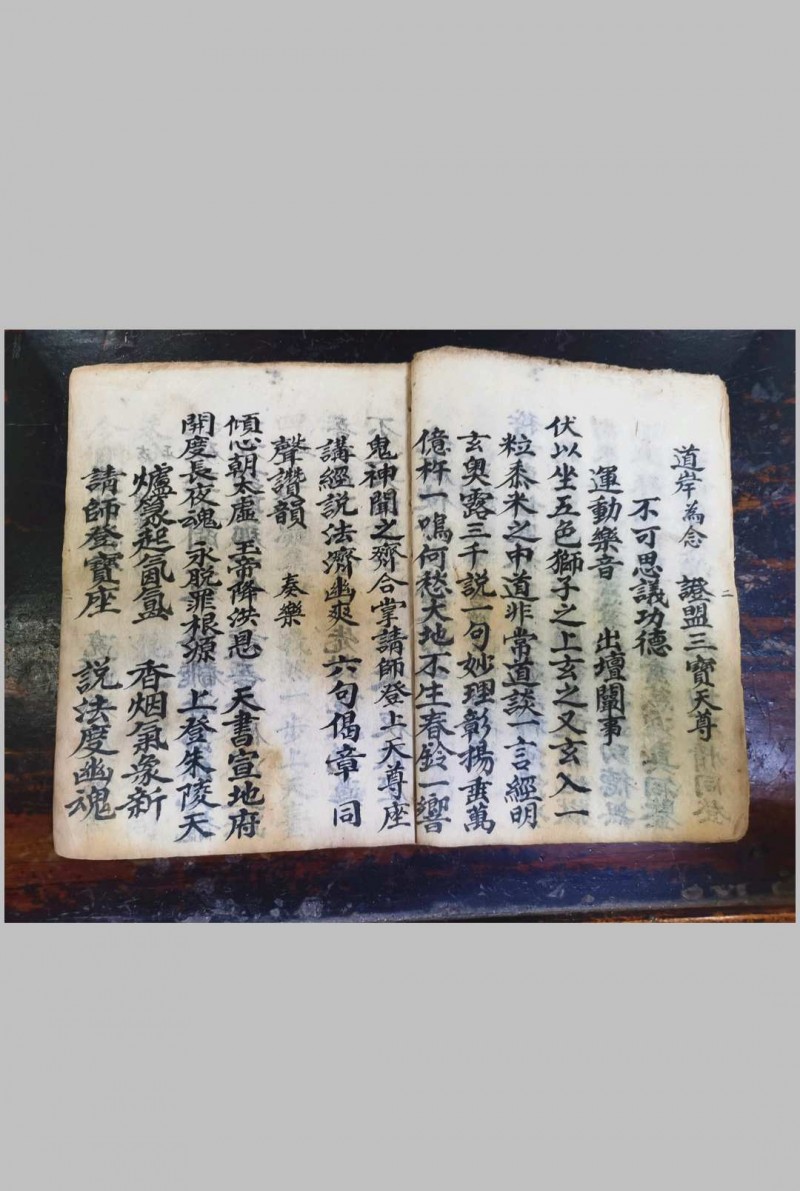 道岸為念　證盟三寶天尊
不可思議功德
運動樂音　出壇闡事
伏以坐五色獅子之上玄之又玄入一
粒黍米之中道非常道談一言經明
玄奥露三千説一句妙理彰揚垂萬
億杵一鳴何愁大地不生春鈴一響
鬼神聞之齊合掌請師登上天尊座
講經説法濟幽爽　六句偈章　同
聲讚韻　奏樂
傾心朝太虛　玉帝降洪恩　天書宣地府
開度長夜魂　永脱罪根源　上登朱陵天
爐篆起氤氲　香烟氣象新
請師登寶座　説法度幽魂
二